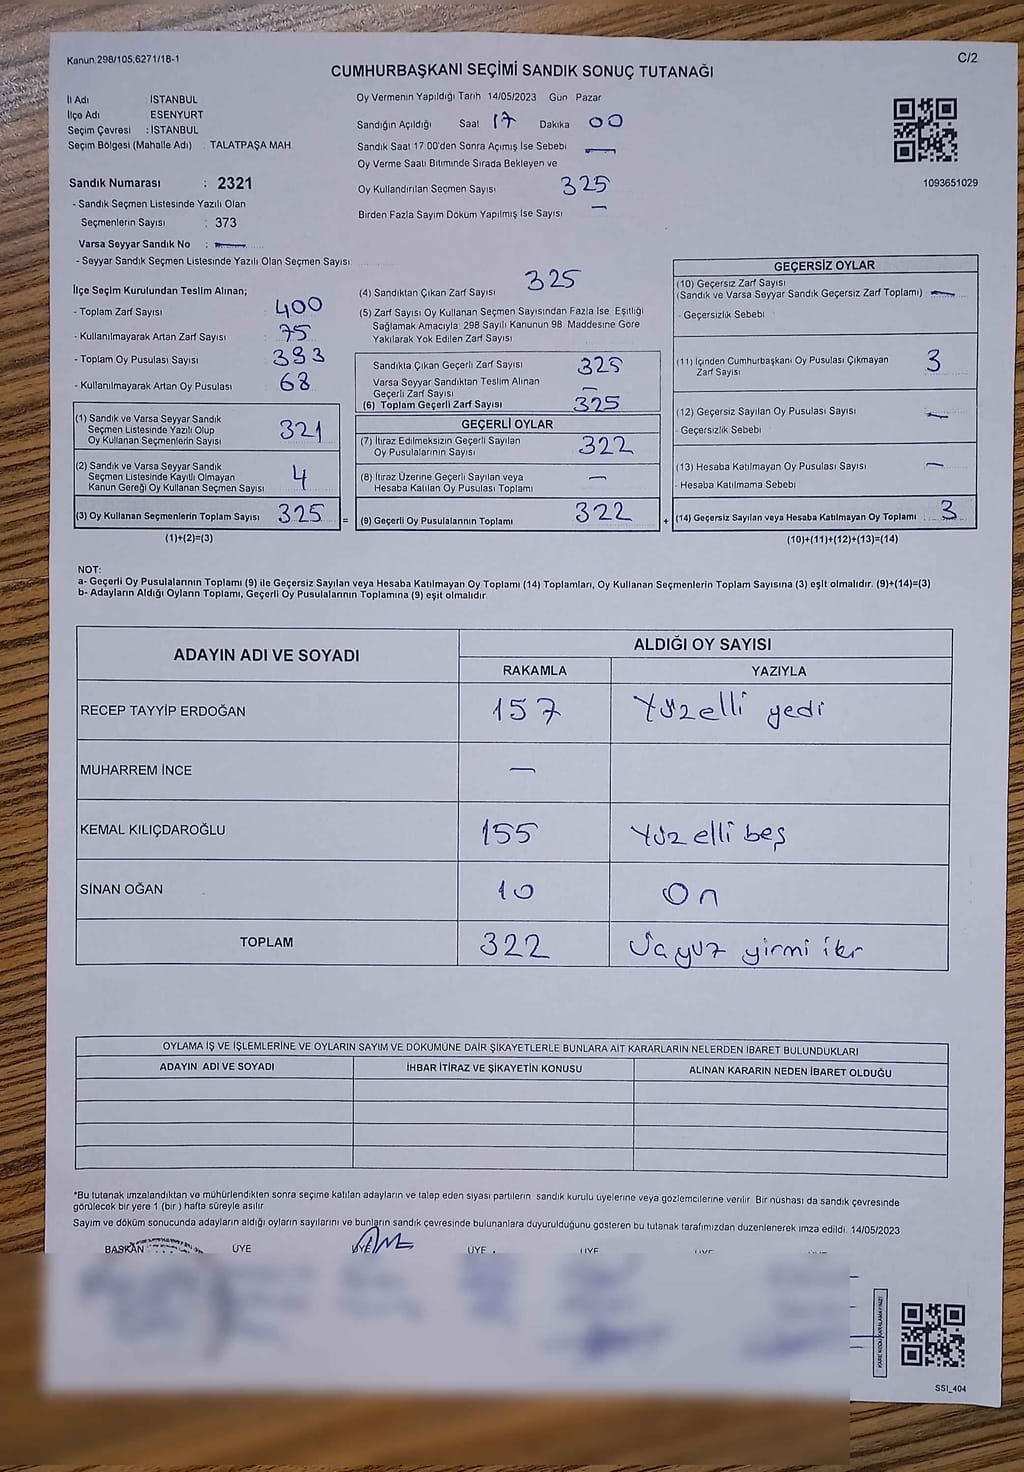 Kanun.298/105,6271/18-1
C/2
CUMHURBAŞKANI SEÇİMİ SANDIK SONUÇ TUTANAĞI
İl Adı : İSTANBUL
İlçe Adı ESENYURT
Seçim Çevresi : İSTANBUL
Seçim Bölgesi (Mahalle Adı) : TALATPAŞA MAH.
Sandık Numarası : 2321
- Sandık Seçmen Listesinde Yazılı Olan
Seçmenlerin Sayısı : 373
Varsa Seyyar Sandık No : —
- Seyyar Sandık Seçmen Listesinde Yazılı Olan Seçmen Sayısı:
Oy Vermenin Yapıldığı Tarih 14/05/2023 Gün Pazar
Sandığın Açıldığı Saat 17 Dakika 00
Sandık Saat 17.00'den Sonra Açımış İse Sebebi —
Oy Verme Saati Bitiminde Sırada Bekleyen ve
Oy Kullandırılan Seçmen Sayısı 325
Birden Fazla Sayım Döküm Yapılmış İse Sayısı —
1093651029
İlçe Seçim Kurulundan Teslim Alınan;
- Toplam Zarf Sayısı : 400
- Kullanılmayarak Artan Zarf Sayısı : 75
- Toplam Oy Pusulası Sayısı : 393
- Kullanılmayarak Artan Oy Pusulası : 68
(1) Sandık ve Varsa Seyyar Sandık
Seçmen Listesinde Yazılı Olup
Oy Kullanan Seçmenlerin Sayısı 321
(2) Sandık ve Varsa Seyyar Sandık
Seçmen Listesinde Kayıtlı Olmayan
Kanun Gereği Oy Kullanan Seçmen Sayısı 4
(3) Oy Kullanan Seçmenlerin Toplam Sayısı 325
(1)+(2)=(3)
(4) Sandıktan Çıkan Zarf Sayısı 325
(5) Zarf Sayısı Oy Kullanan Seçmen Sayısından Fazla İse Eşitliği
Sağlamak Amacıyla 298 Sayılı Kanunun 98. Maddesine Göre
Yakılarak Yok Edilen Zarf Sayısı
Sandıkta Çıkan Geçerli Zarf Sayısı 325
Varsa Seyyar Sandıktan Teslim Alınan
Geçerli Zarf Sayısı —
(6) Toplam Geçerli Zarf Sayısı 325
GEÇERLİ OYLAR
(7) İtiraz Edilmeksizin Geçerli Sayılan
Oy Pusulalarının Sayısı 322
(8) İtiraz Üzerine Geçerli Sayılan veya
Hesaba Katılan Oy Pusulası Toplamı —
= (9) Geçerli Oy Pusulalarının Toplamı 322
GEÇERSİZ OYLAR
(10) Geçersiz Zarf Sayısı
(Sandık ve Varsa Seyyar Sandık Geçersiz Zarf Toplamı) —
- Geçersizlik Sebebi
(11) İçinden Cumhurbaşkanı Oy Pusulası Çıkmayan
Zarf Sayısı 3
(12) Geçersiz Sayılan Oy Pusulası Sayısı —
- Geçersizlik Sebebi
(13) Hesaba Katılmayan Oy Pusulası Sayısı —
- Hesaba Katılmama Sebebi
+ (14) Geçersiz Sayılan veya Hesaba Katılmayan Oy Toplamı 3
(10)+(11)+(12)+(13)=(14)
NOT:
a- Geçerli Oy Pusulalarının Toplamı (9) ile Geçersiz Sayılan veya Hesaba Katılmayan Oy Toplamı (14) Toplamları, Oy Kullanan Seçmenlerin Toplam Sayısına (3) eşit olmalıdır. (9)+(14)=(3)
b- Adayların Aldığı Oyların Toplamı, Geçerli Oy Pusulalarının Toplamına (9) eşit olmalıdır.
ADAYIN ADI VE SOYADI
ALDIĞI OY SAYISI
RAKAMLA YAZIYLA
RECEP TAYYİP ERDOĞAN 157 Yüzelli yedi
MUHARREM İNCE —
KEMAL KILIÇDAROĞLU 155 Yüz elli beş
SİNAN OĞAN 10 On
TOPLAM 322 Üçyüz yirmi iki
OYLAMA İŞ VE İŞLEMLERİNE VE OYLARIN SAYIM VE DÖKÜMÜNE DAİR ŞİKAYETLERLE BUNLARA AİT KARARLARIN NELERDEN İBARET BULUNDUKLARI
ADAYIN ADI VE SOYADI İHBAR İTİRAZ VE ŞİKAYETİN KONUSU ALINAN KARARIN NEDEN İBARET OLDUĞU
*Bu tutanak imzalandıktan ve mühürlendikten sonra seçime katılan adayların ve talep eden siyasi partilerin sandık kurulu üyelerine veya gözlemcilerine verilir. Bir nüshası da sandık çevresinde
görülecek bir yere 1 (bir) hafta süreyle asılır.
Sayım ve döküm sonucunda adayların aldığı oyların sayılarını ve bunların sandık çevresinde bulunanlara duyurulduğunu gösteren bu tutanak tarafımızdan düzenlenerek imza edildi. 14/05/2023
BAŞKAN ÜYE ÜYE ÜYE ÜYE
KARE KODU KARALAMAYINIZ!
SSI_404